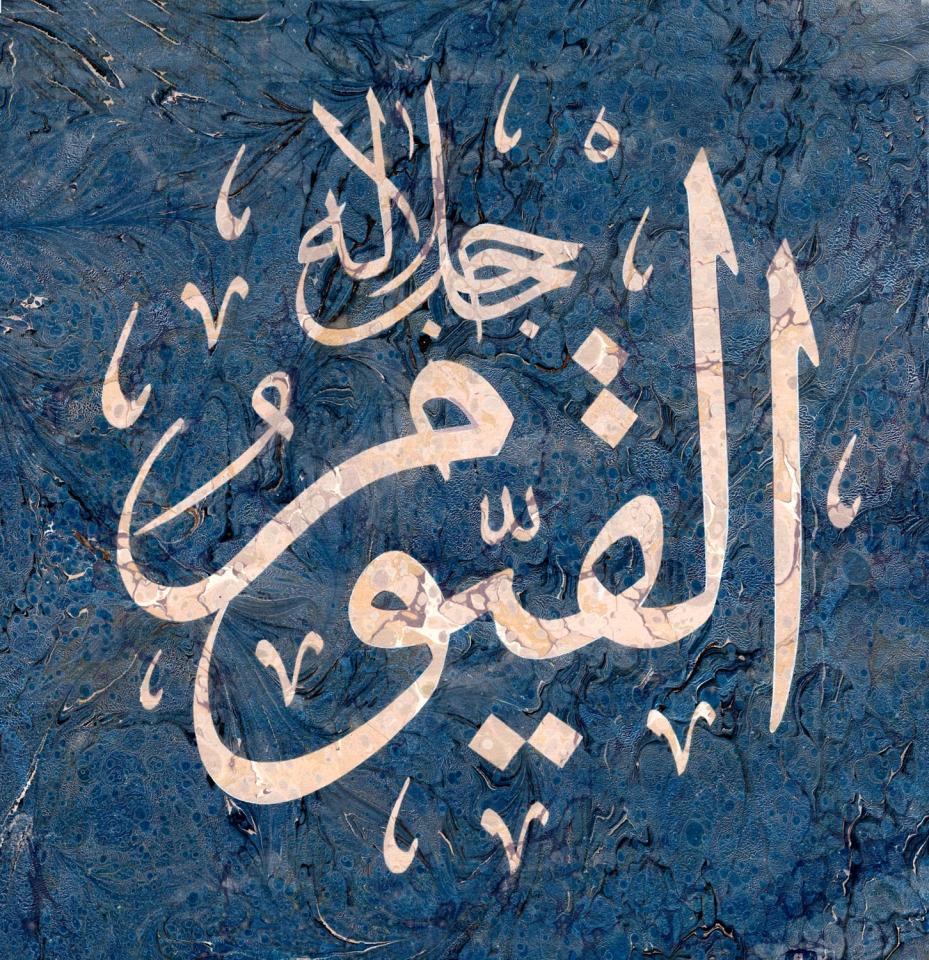 القيّومُ
جل جلاله